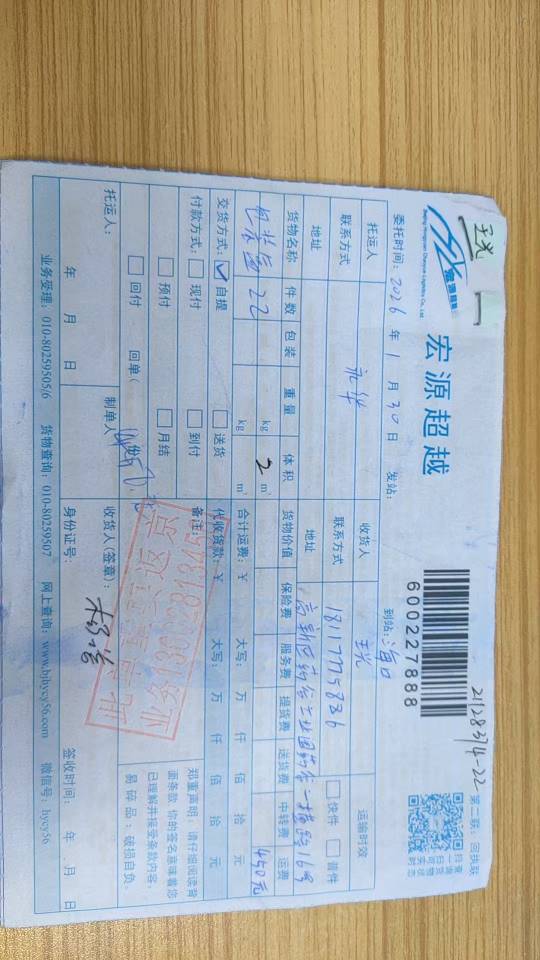 宏源超越
Beijing Hongyuan Chaoyue Logistics Co., Ltd.
600227888
2118314-22
第二联：回执联
委托时间：2026 年 1 月 30 日 发站： 到站：海口
托运人 永华 收货人 运输时效
联系方式 联系方式 18117775836 快件 普件
地址 地址 高新区药谷工业园药谷一横路16号
货物名称 件数 包装 重量 体积 货物价值 保险费 服务费 提货费 送货费 中转费 运费
包装盒 22 kg 2 m³ 450元
kg m³ 合计运费：￥ 大写： 万 仟 佰 拾 元
交货方式： 自提 送货 代收货款：￥ 大写： 万 仟 佰 拾 元
付款方式： 现付 到付 备注：
预付 月结
回付 回单(
郑重声明：请仔细阅读背
面条款 你的签名意味着您
已理解并接受条款内容。
易碎品：破损自负。
托运人： 制单人 收货人(签章)：
年 月 日 身份证号： 签收时间： 年 月 日
业务受理：010-80259505/6 货物查询：010-80259507 网上查询：www.bjhycy56.com 微信号：hycy56